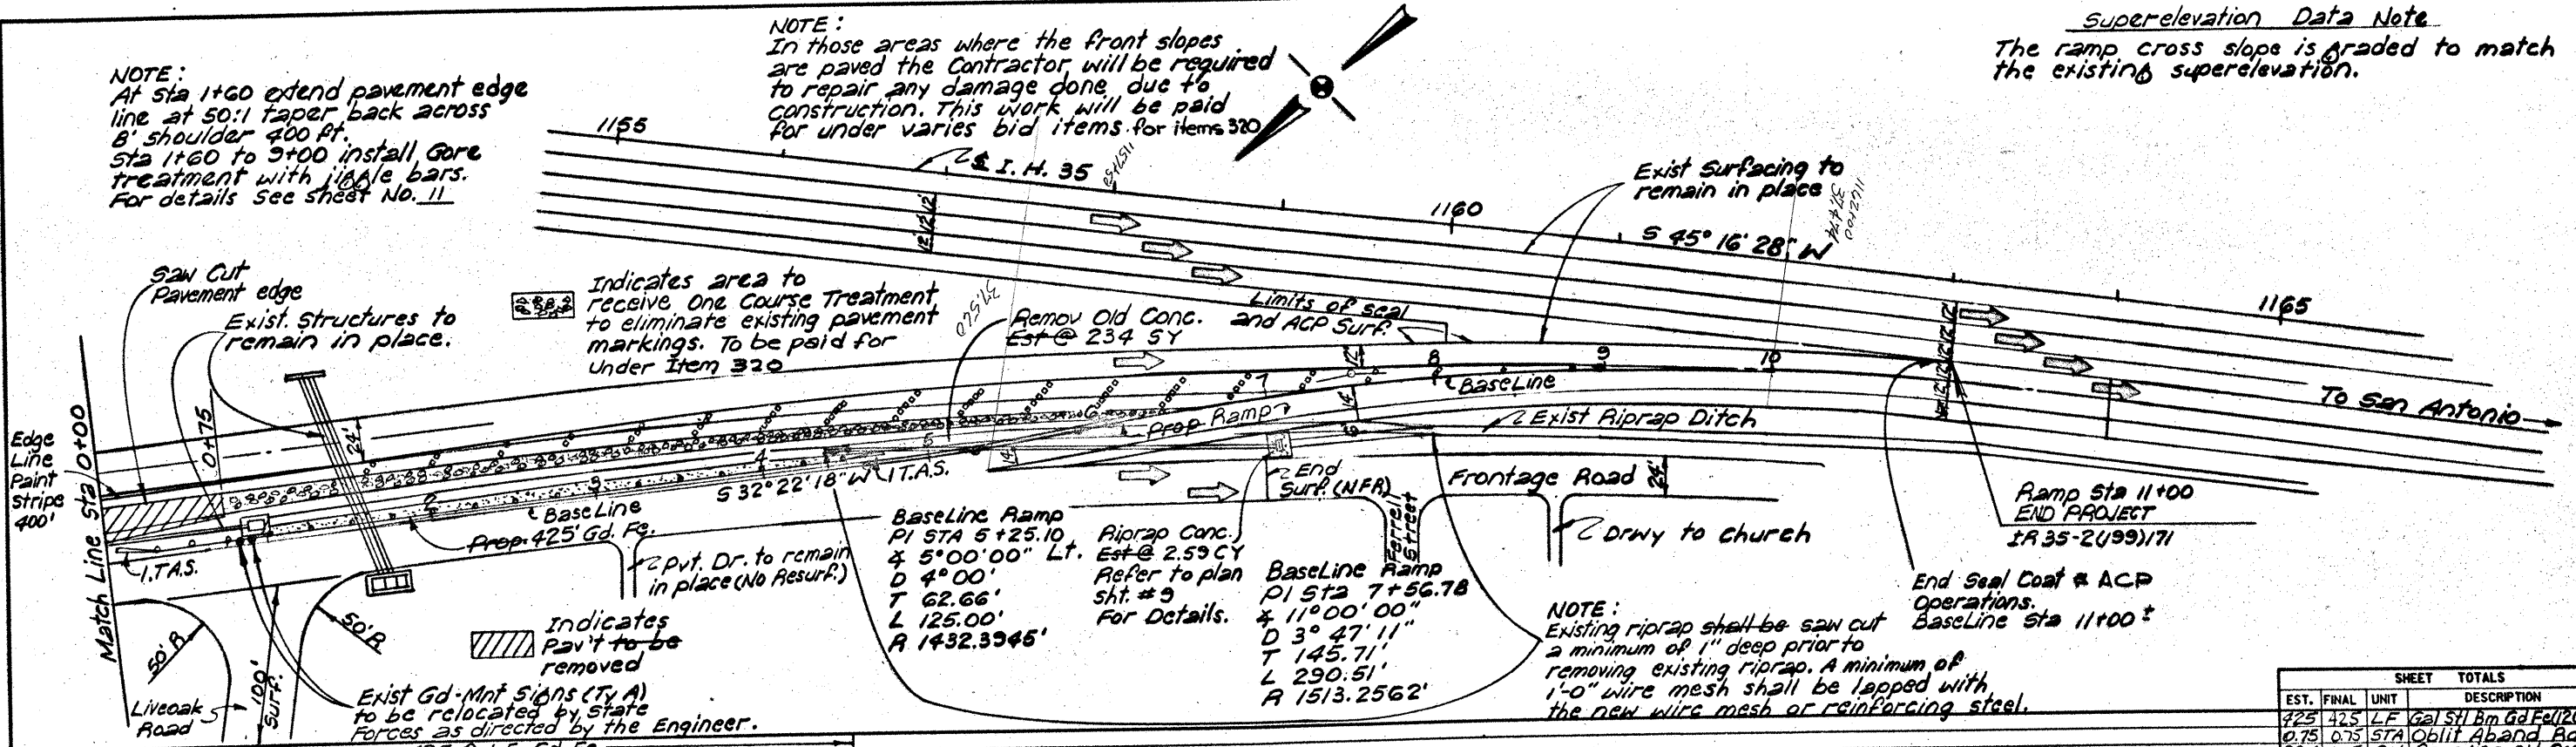 NOTE:
At Sta 1+60 extend pavement edge
line at 50:1 taper back across
8' shoulder 400 ft.
Sta 1+60 to 9+00 install Gore
treatment with jiggle bars.
For details see sheet No. 11
NOTE:
In those areas where the front slopes
are paved the Contractor will be required
to repair any damage done due to
construction. This work will be paid
for under varies bid items for items 320
Superelevation Data Note
The ramp cross slope is graded to match
the existing superelevation.
1155
℄ I.H. 35
1157+59
1160
Exist Surfacing to
remain in place
1162+00
S 45° 16' 28" W
1165
12' 12' 12'
Saw Cut
Pavement edge
Exist. Structures to
remain in place.
Indicates area to
receive One Course Treatment
to eliminate existing pavement
markings. To be paid for
Under Item 320
Remov Old Conc.
Est @ 234 SY
Limits of seal
and ACP Surf.
8
9
10
℄ BaseLine
To San Antonio
Edge
Line
Paint
Stripe
400'
Match Line Sta 0+00
0+75
24'
Prop Ramp
7
6
5
4
3
2
12'
14'
6'
Exist Riprap Ditch
S 32° 22' 18" W
I.T.A.S.
℄ BaseLine
Prop. 425' Gd. Fe.
I.T.A.S.
End
Surf. (NFR)
Frontage Road
24'
Ferrell
Street
Drwy to Church
Ramp Sta 11+00
END PROJECT
IR 35-2(199)171
Pvt. Dr. to remain
in place (No Resurf.)
BaseLine Ramp
PI STA 5+25.10
∡ 5°00'00" Lt.
D 4°00'
T 62.66'
L 125.00'
R 1432.3945'
Riprap Conc.)
Est @ 2.59 CY
Refer to plan
sht. #9
For Details.
BaseLine Ramp
PI Sta 7+56.78
∡ 11°00'00"
D 3° 47' 11"
T 145.71'
L 290.51'
R 1513.2562'
NOTE:
Existing riprap shall be saw cut
a minimum of 1" deep prior to
removing existing riprap. A minimum of
1'-0" wire mesh shall be lapped with
the new wire mesh or reinforcing steel.
End Seal Coat & ACP
Operations.
BaseLine Sta 11+00 ±
Indicates
Pav't to be
removed
50' R
50' R
100'
Surf.
Liveoak
Road
Exist Gd-Mnt Signs (Ty A)
to be relocated by State
Forces as directed by the Engineer.
SHEET TOTALS
EST. FINAL UNIT DESCRIPTION
425 425 LF Gal Stl Bm Gd Fe
0.75 0.75 STA Oblit Aband Rd